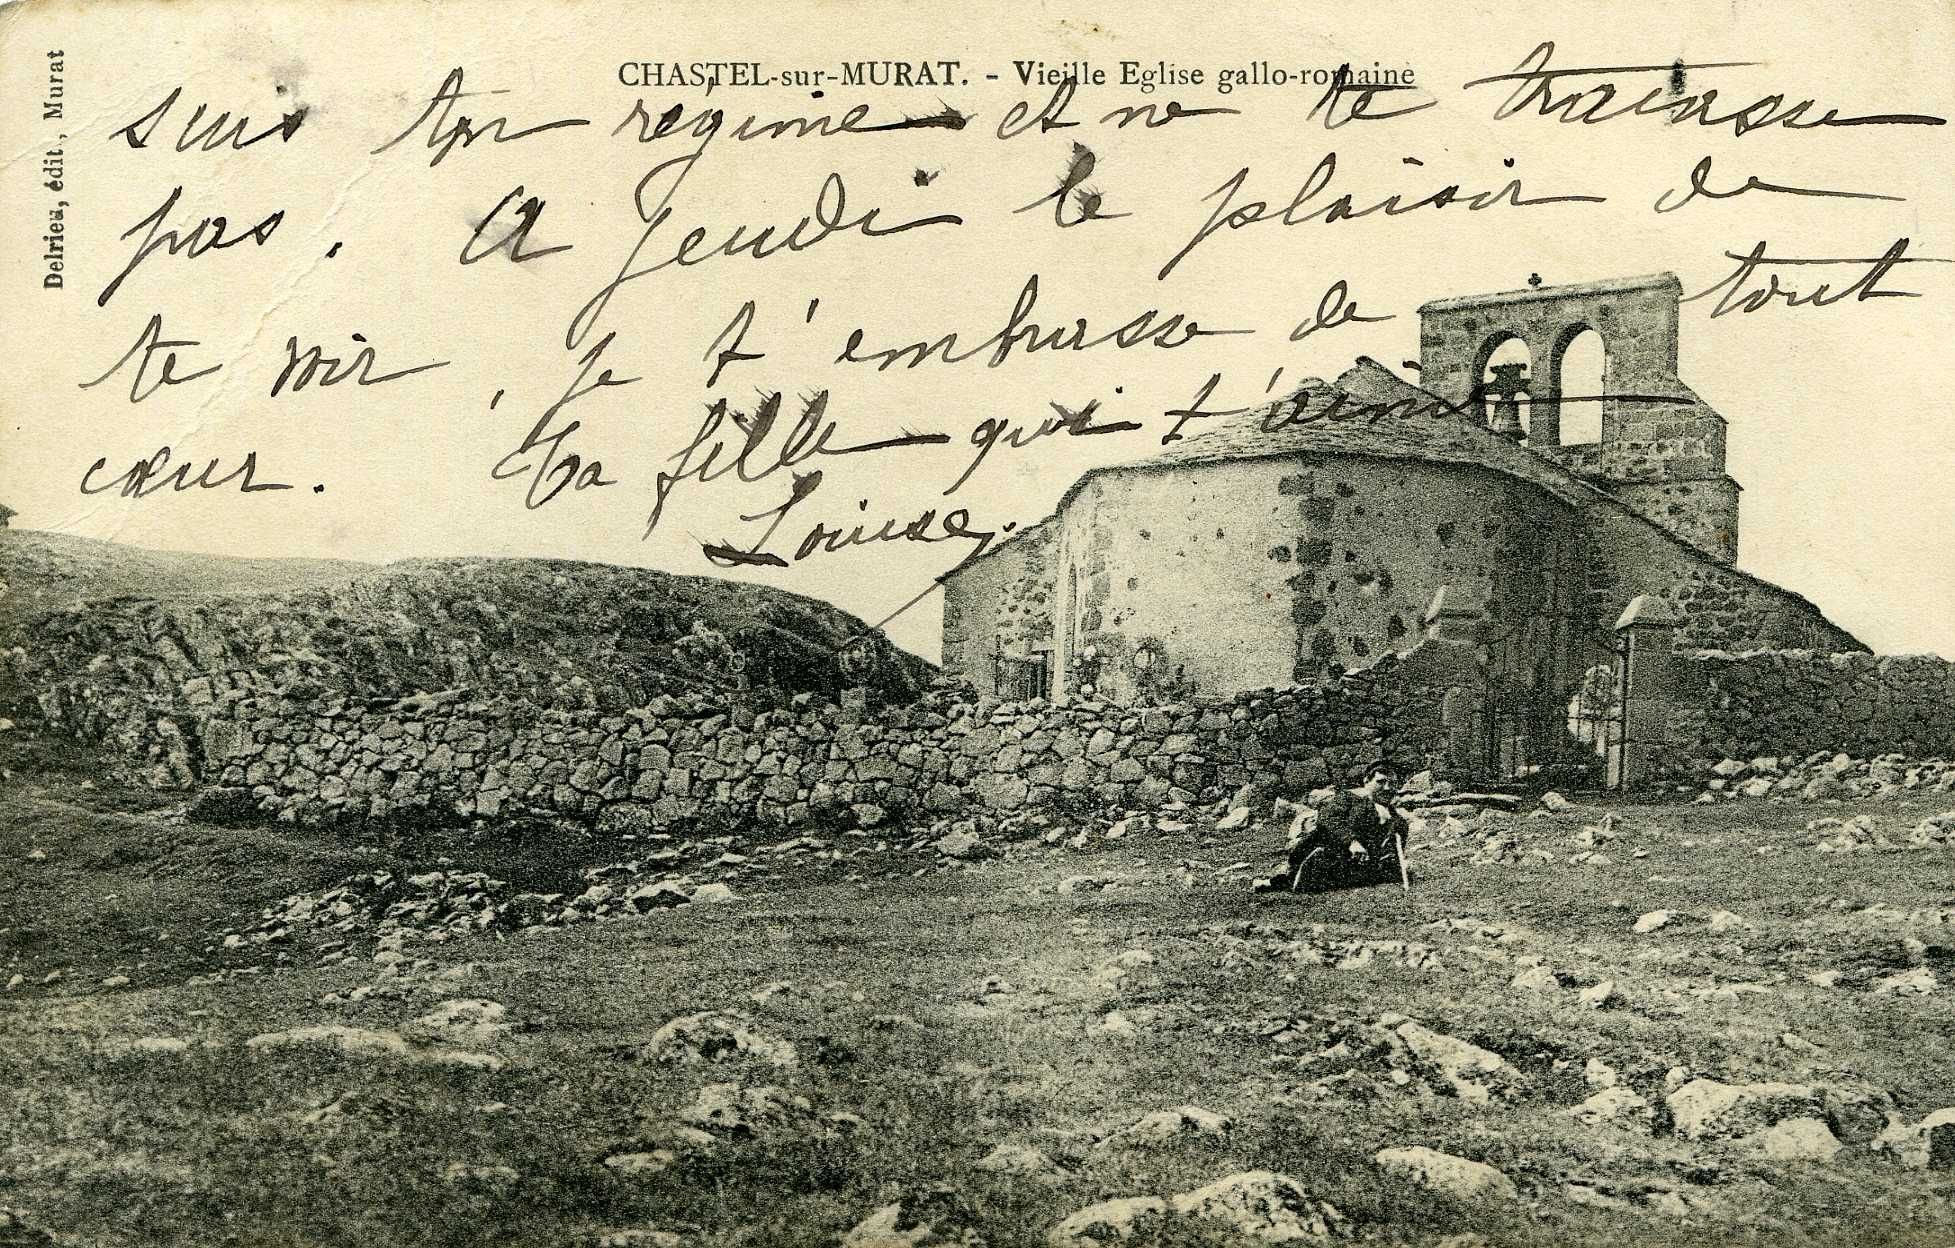 CHASTEL-sur-MURAT. - Vieille Eglise gallo-romaine
Delrieu, édit., Murat
suis ton régime et ne te tracasse
pas. A jeudi le plaisir de
te voir, je t'embrasse de tout
cœur. Ta fille qui t'aime
Louise.